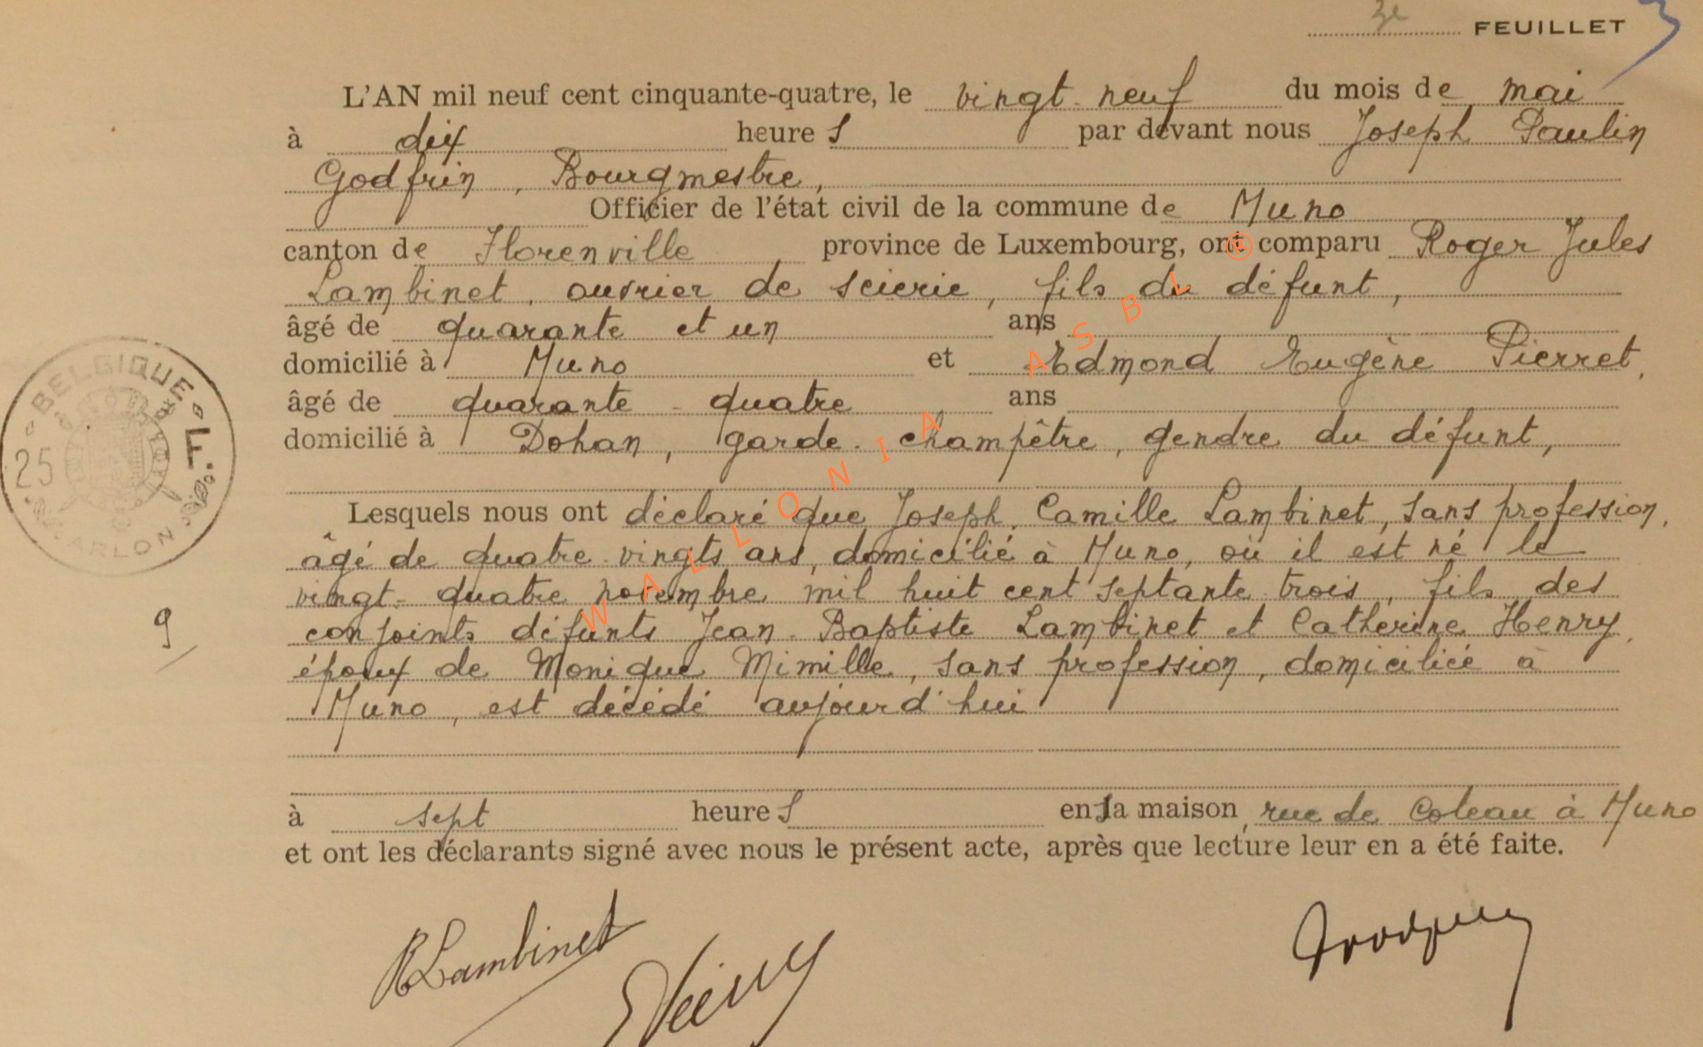 3e FEUILLET
L'AN mil neuf cent cinquante-quatre, le vingt-neuf du mois de mai
à dix heures par devant nous Joseph Paulin
Godfrin, Bourgmestre,
Officier de l'état civil de la commune de Muno
canton de Florenville province de Luxembourg, ont comparu Roger Jules
Lambinet, ouvrier de scierie, fils du défunt,
âgé de quarante et un ans
domicilié à Muno et Edmond Eugène Pierret,
âgé de quarante-quatre ans
domicilié à Dohan, garde-champêtre, gendre du défunt,
Lesquels nous ont déclaré que Joseph, Camille Lambinet, sans profession,
âgé de quatre-vingts ans, domicilié à Muno, où il est né le
vingt-quatre novembre mil huit cent septante trois, fils des
conjoints défunts Jean-Baptiste Lambinet et Catherine Henry,
époux de Monique Mimille, sans profession, domiciliée à
Muno, est décédé aujourd'hui
à sept heures en sa maison, rue de Coteau à Muno
et ont les déclarants signé avec nous le présent acte, après que lecture leur en a été faite.
RLambinet
BELGIQUE
25
ARLON
9
WALLONIA ASBL ©